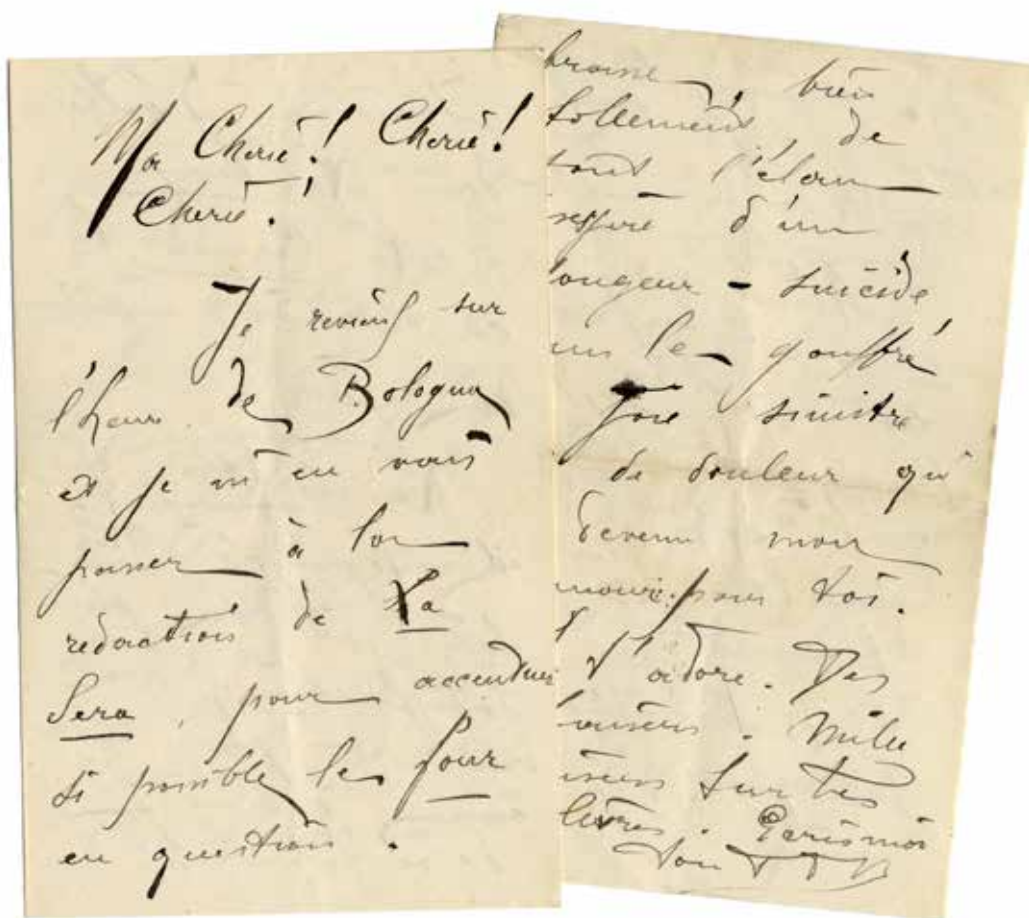 Ma Cherie! Cherie!
Cherie!
Je reviens sur
l'heure de Bologna
et je m'en vais
passer à la
redaction de La
Sera, pour accentuer
si possible le four
en question.
bien
follement, de
tout l'élan
d'un
ongeur - suicide
le gouffre
Joie sinistre
de douleur qui
devenu mon
mour pour toi.
t'adore. Des
aisers. Mille
isers sur tes
lèvres. Ecris moi
Ton